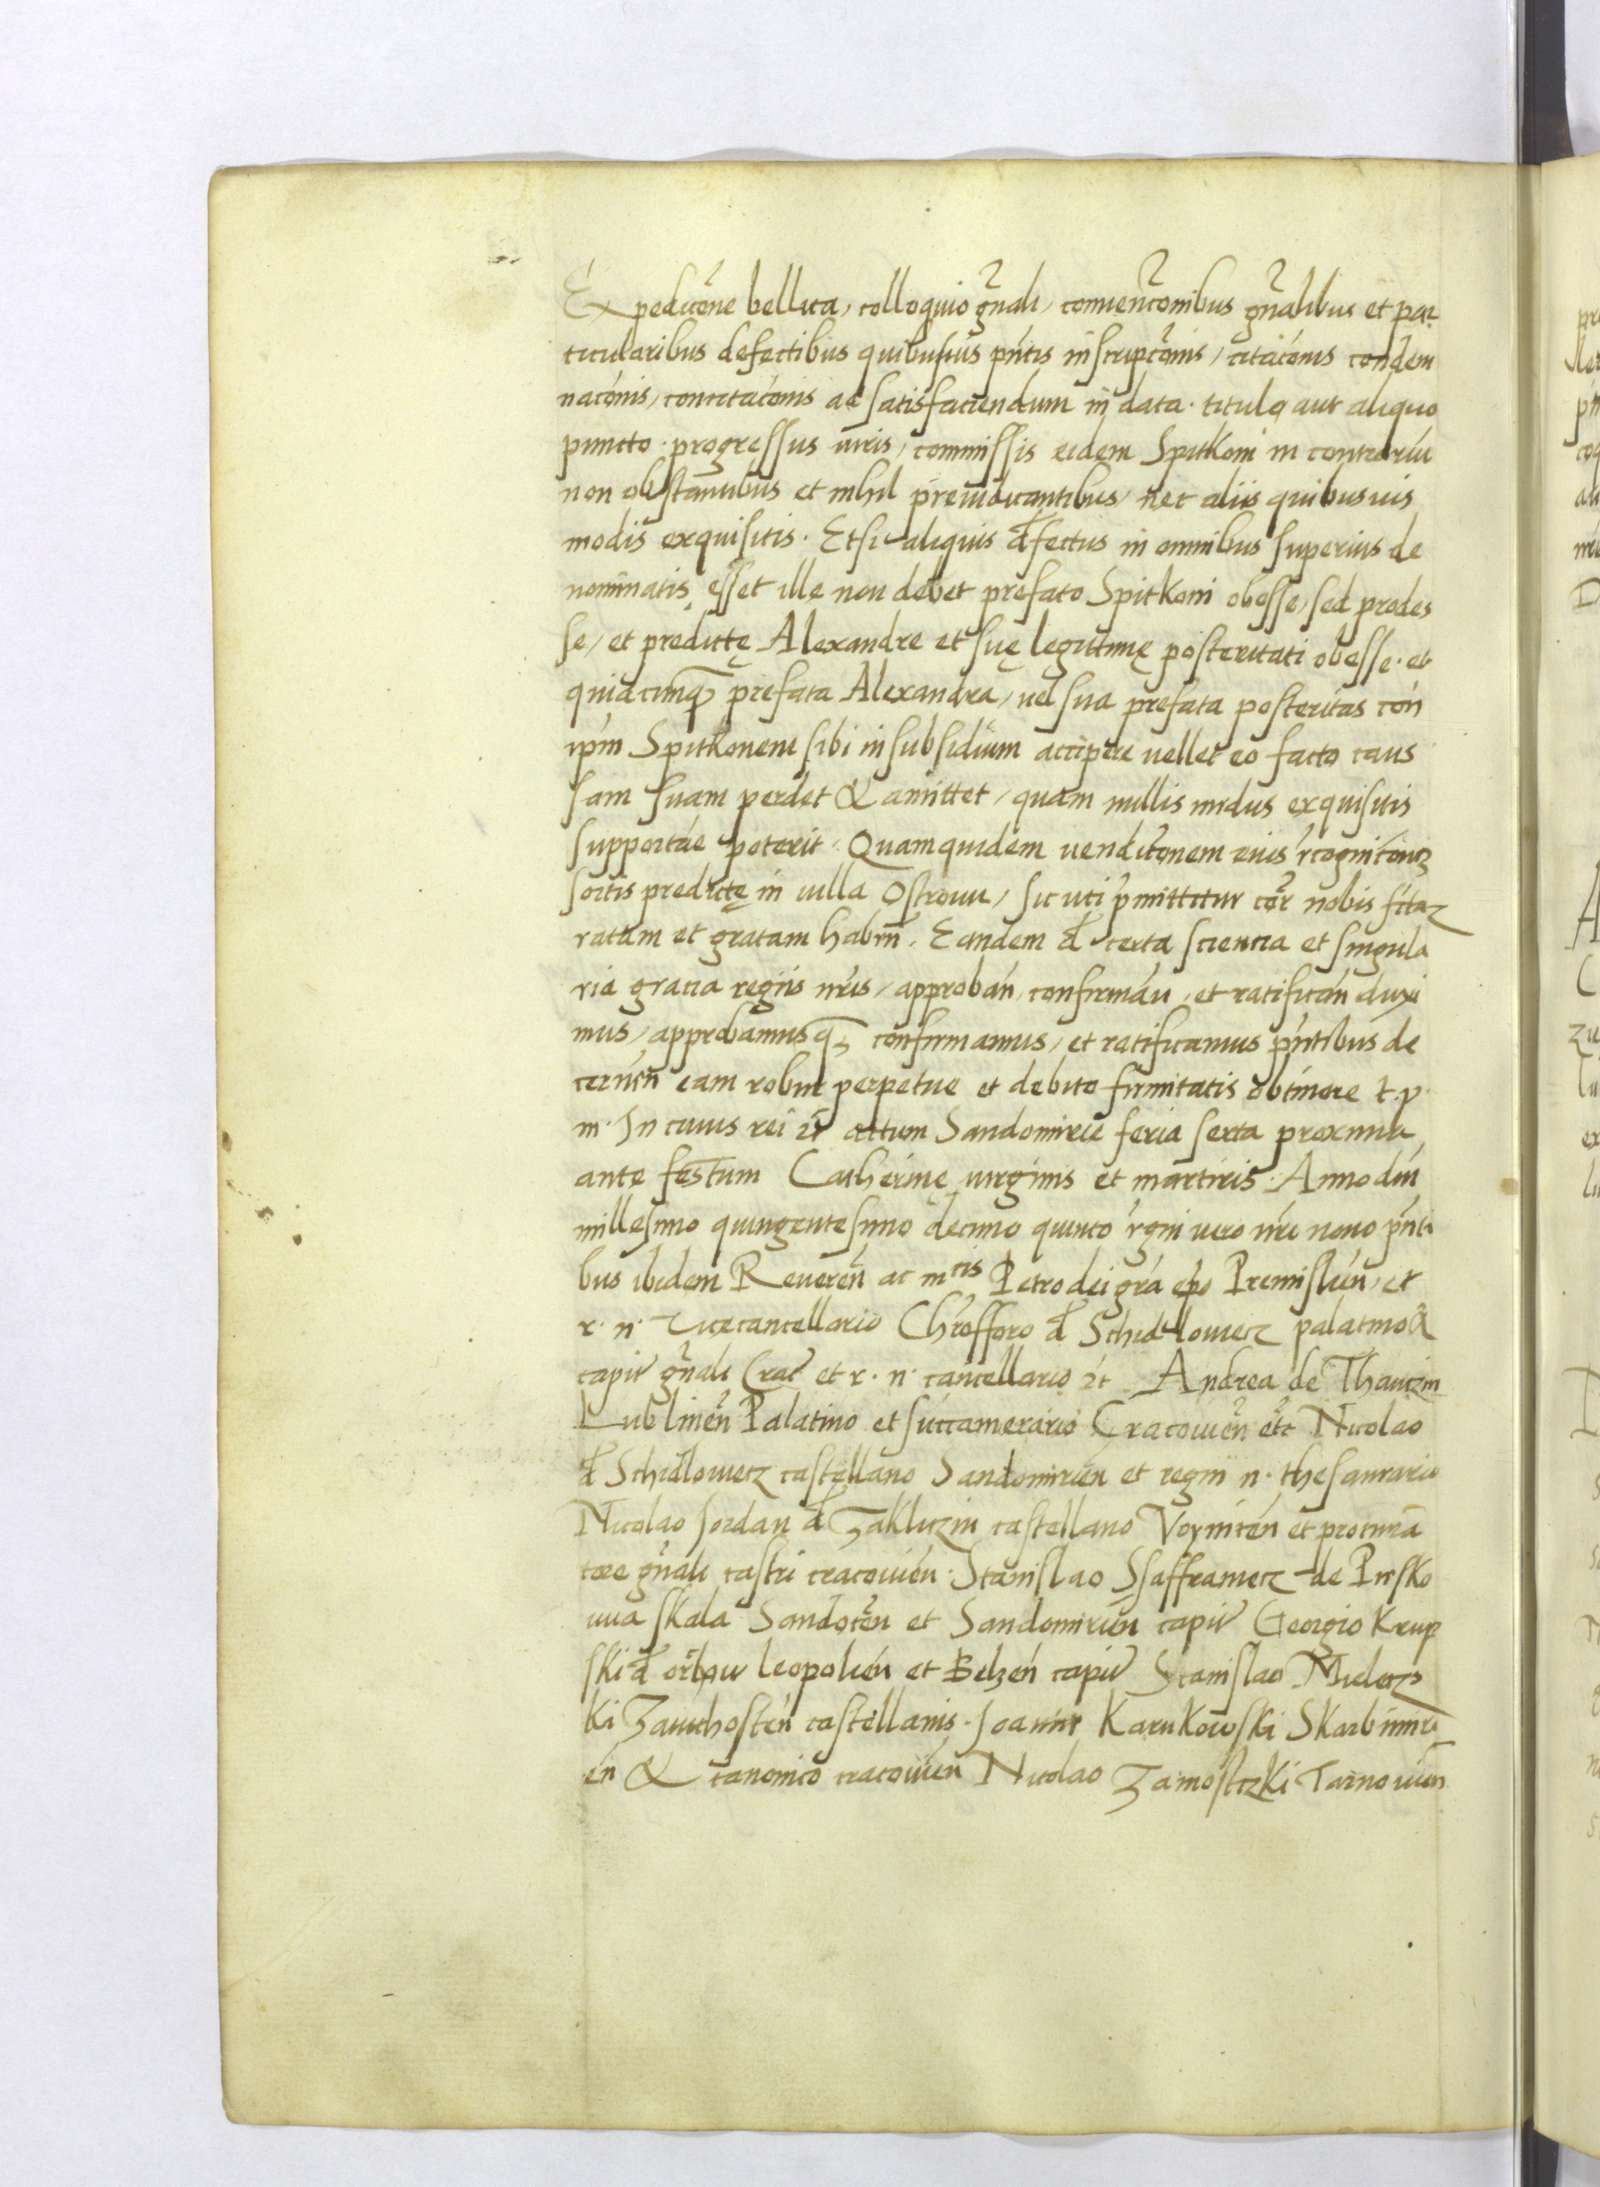 Expeditōne bellica, colloquio gn̄ali, conuentōnibus gn̄alibus et par
ticularibus defectibus quibusuis pn̄tis inscriptōnis, citacōnis condem
nacōnis, concitacōnis ad satisfaciendum in data. titulo aut aliquo
puncto. progressus iuris, commissis eidem Spitkoni in contrariū
non obstantibus et nihil preiudicantibus, nec aliis quibusuis
modis exquisitis. Etsi aliquis dfectus in omnibus superius de
nominatis esset ille non debet prefato Spitkoni obesse, sed prodes
se, et predictę Alexandre et suę legittimę posteritati obesse. et
quiacunq prefata Alexandra, uel sua prefata posteritas con̄
ipm̄ Spitkonem sibi in subsidium accipere uellet eo facto caus
sam suam perdet & amittet, quam nullis modus exquisitis
supportāe poterit. Quamquidem venditōnem eius rcognicōnis
sortis predictę in uilla Ostrouu, sicuti pmittitur cor nobis fctaz
ratam et gratam habn̄. Eandem d certa sciencia et singula
ria gracia regiis nr̄is, approban̄, confirmān, et ratificān duxi
mus, approbamusq, confirmamus, et ratificamus pn̄tibus de
cernen̄ eam robur perpetue et debito firmitatis obtinere t. p.
m. In cuius rei ꝛc̄ actum Sandomirie feria sexta proxima
ante festum Catherinę uirginis et martiris. Anno dn̄i
millesimo quingentesimo decimo quinto rgni uero nr̄i nono pn̄ti
bus ibidem Reueren̄ ac mcis Petro dei grā epo Premislien̄, et
r. n. Vicecancellario Chrofforo d Schidlowecz palatino &
capit gn̄ali Crac̄ et r. n. cancellario ꝛc̄ Andrea de Thanczin
Lublinen̄ Palatino et succamerario Cracouien̄ etc̄ Nicolao
d Schidlowecz castellano Sandomirien̄ et regni n. thesaurario
Nicolao Jordan d Zakliczin castellano Voynicen̄ et procura
tore gn̄ali castri cracouien̄. Stanislao Ssafframecz de Piesko
uua skala Sandocen̄ et Sandomirien̄ capit Georgio Krup
ski d orchow leopolien̄ et Belzen̄ capit Stanislao Mielecz
ki Zauichosten̄ castellanis. Joanne Karnkowski Skarbimiri
en̄ & canonico cracouien̄ Nicolao Zamosczki Tarnouien̄